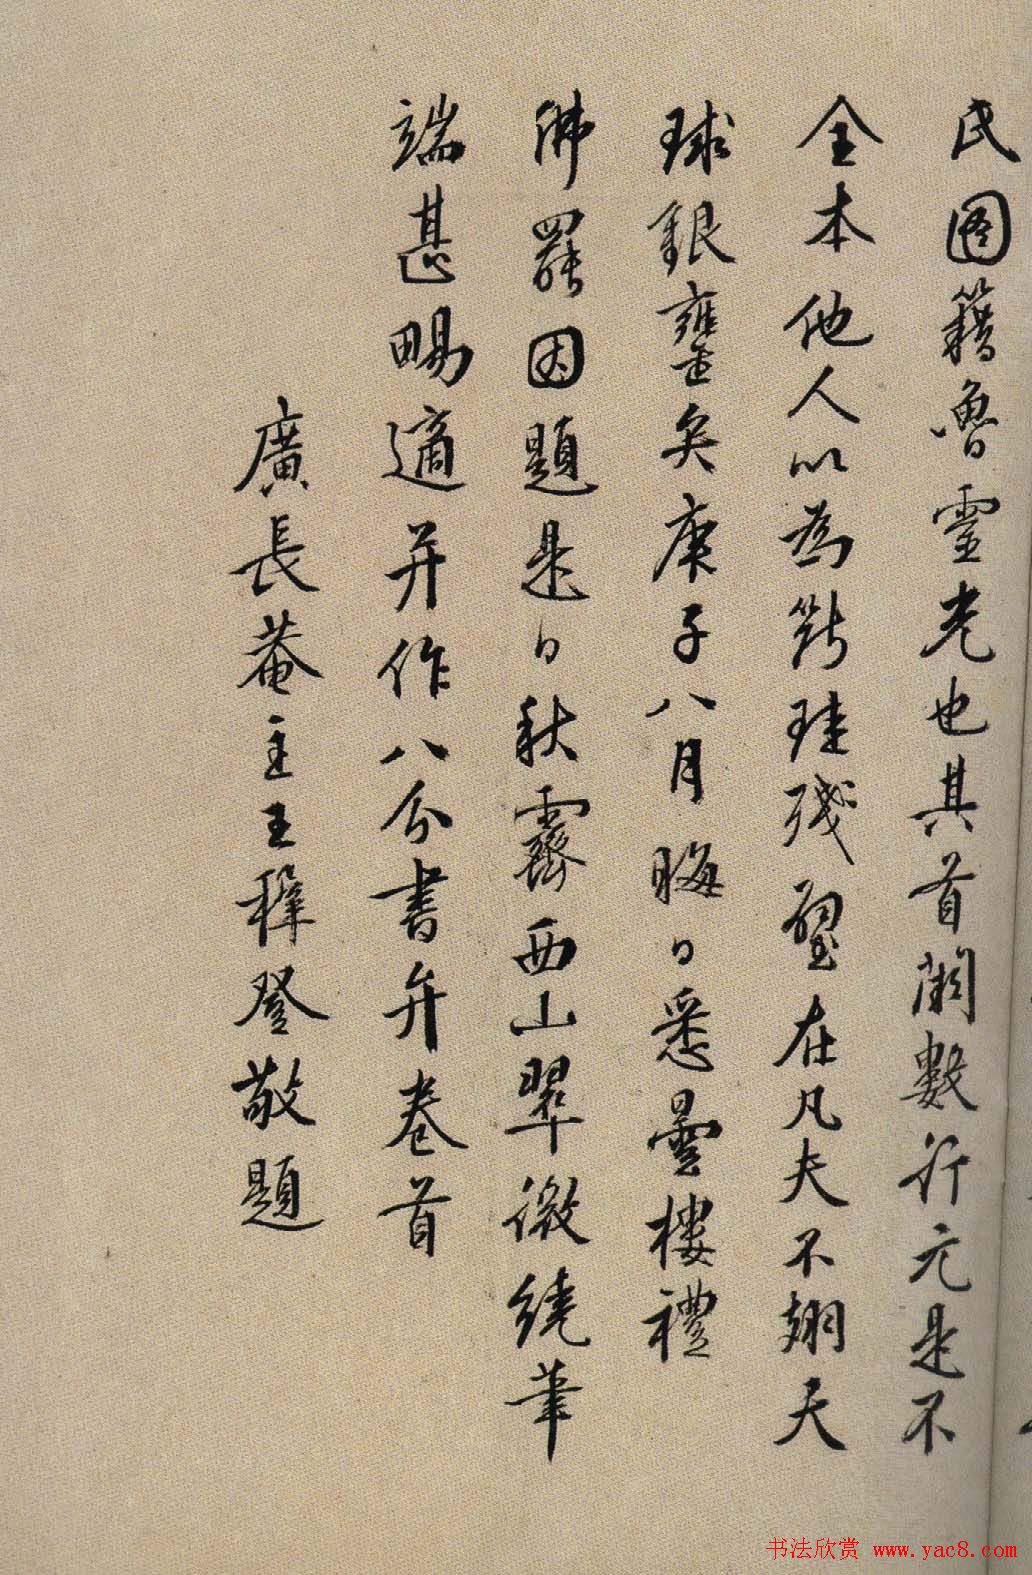 氏圖籍魯靈光也其首闕數行元是不
全本他人以為斷珪殘璧在凡夫不翅天
球銀甕矣庚子八月晦日悉曇樓禮
佛罷因題是日秋霽西山翠微繞筆
端甚暢適并作八分書弁卷首
廣長菴主王穉登敬題
书法欣赏 www.yac8.com